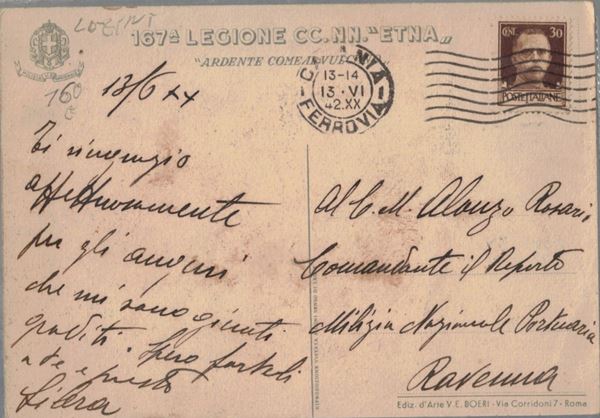 167ª LEGIONE CC.NN. "ETNA„
"ARDENTE COME
160
13/6 XX
CATANIA
13-14
13·VI
42.XX
FERROVIA
1
CENT. 30
POSTE ITALIANE
Ti ringrazio
affettuosamente
per gli auguri
che mi sono giunti
graditi. Spero farteli
a te e presto
Al C. M. Alonzo Rosario
Comandante il Reparto
Milizia Nazionale Portuaria
Ravenna
Ediz. d'Arte V. E. BOERI - Via Corridoni 7 - Roma